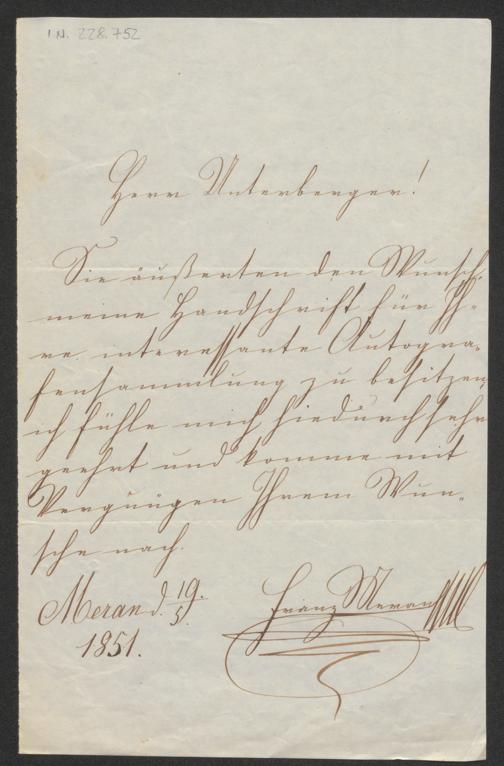 I.N. 228.752
Herr Unterberger!
Sie äußerten den Wunsch,
meine Handschrift für Ih-
re interessante Autogra-
fensammlung zu besitzen,
ich fühle mich hiedurch sehr
geehrt und komme mit
Vergnügen Ihrem Wun-
sche nach.
Meran d. 19/5.
1851.
Franz Meran